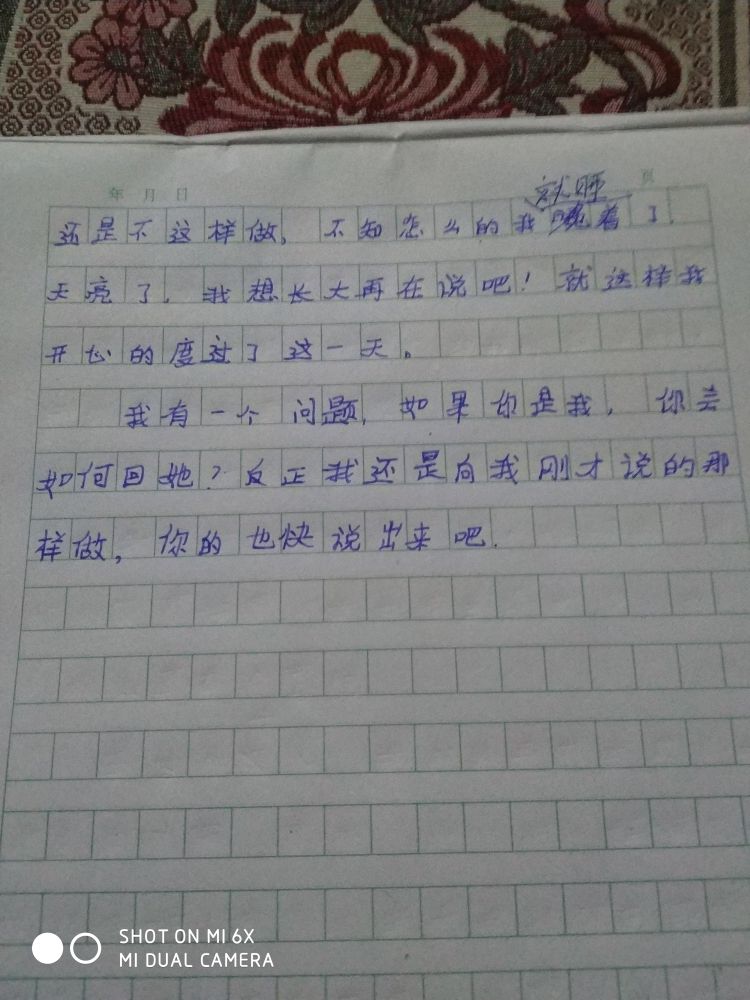 年 月 日 页
就睡
还是不这样做。不知怎么的我着了.
天亮了.我想长大再在说吧!就这样我
开心的度过了这一天。
我有一个问题,如果你是我,你会
如何回她?反正我还是向我刚才说的那
样做,你的也快说出来吧.
SHOT ON MI 6X
MI DUAL CAMERA